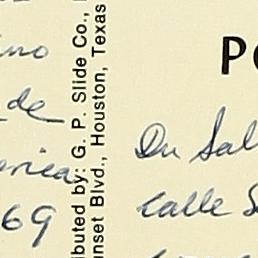 ino
de
erica
69
ibuted by: G. P. Slide Co.,
nset Blvd., Houston, Texas
PO
Du Sal
Calle S